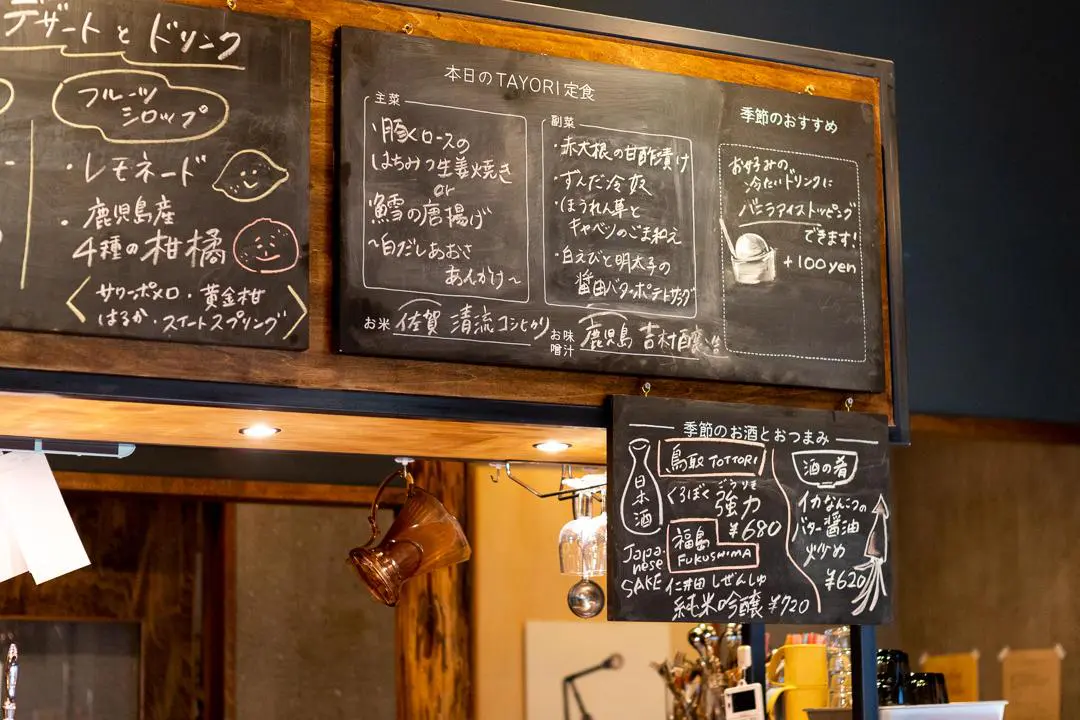 デザートとドリンク
フルーツ
シロップ
・レモネード
・鹿児島産
4種の柑橘
サワーポメロ・黄金柑
はるか・スイートスプリング
本日のTAYORI定食
主菜
・豚ロースの
はちみつ生姜焼き
or
・鱈の唐揚げ
〜白だしあおさ
あんかけ〜
副菜
・赤大根の甘酢漬け
・ずんだ冷奴
・ほうれん草と
キャベツのごま和え
・白えびと明太子の
醤油バターポテトサラダ
お米 佐賀 清流コシヒカリ
お味
噌汁
鹿児島 吉村醸造
季節のおすすめ
お好みの
冷たいドリンクに
バニラアイストッピング
できます!
+100yen
季節のお酒とおつまみ
日本酒
Japa-
nese
SAKE
鳥取 TOTTORI
ごうりき
くろぼく 強力
¥680
福島
FUKUSHIMA
仁井田 しぜんしゅ
純米吟醸 ¥720
酒の肴
イカなんこつの
バター醤油
炒め
¥620